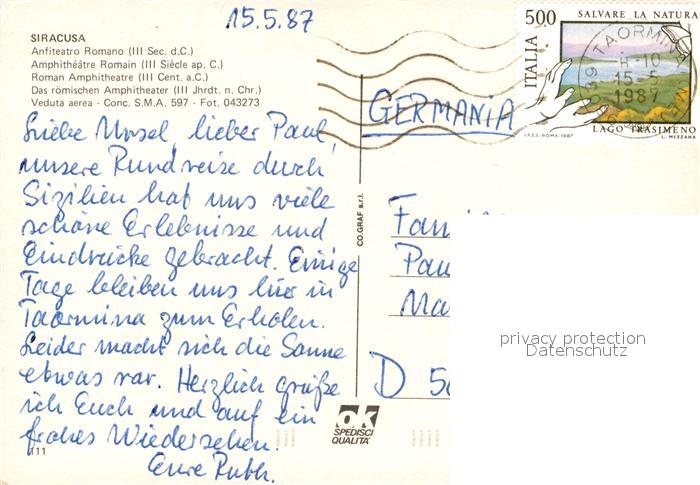 15.5.87
SIRACUSA
Anfiteatro Romano (III Sec. d.C.)
Amphithéâtre Romain (III Siècle ap. C.)
Roman Amphitheatre (III Cent. a.C.)
Das römischen Amphitheater (III Jhrdt. n. Chr.)
Veduta aerea - Conc. S.M.A. 597 - Fot. 043273
Liebe Ursel, lieber Paul,
unsere Rundreise durch
Sizilien hat uns viele
schöne Erlebnisse und
Eindrücke gebracht. Einige
Tage bleiben uns hier in
Taormina zum Erholen.
Leider macht sich die Sonne
etwas rar. Herzlich grüße
ich Euch und auf ein
frohes Wiedersehen.
Eure Ruth.
111
CO.GRAF s.r.l.
ok
SPEDISCI
QUALITÀ
500
SALVARE LA NATURA
ITALIA
LAGO TRASIMENO
I.P.Z.S.-ROMA-1987
L. MEZZANA
TAORMINA
H-10
15-5
1987
GERMANIA
Fam
Pau
Ma
D 50
privacy protection
Datenschutz